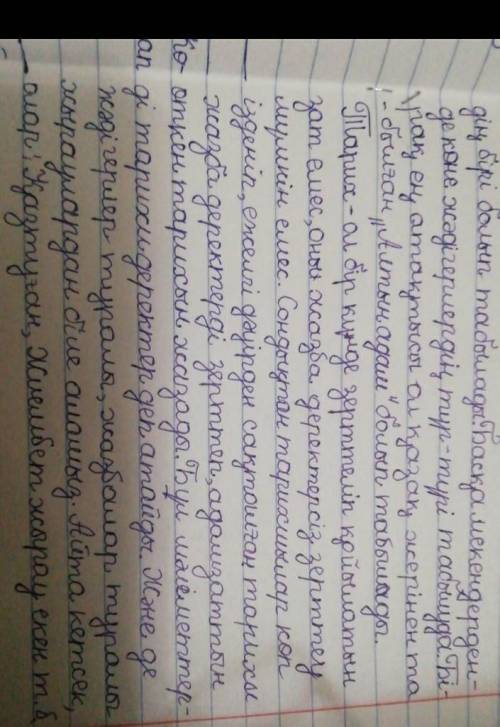 дің бірі болып табылады. Басқа мекендерден-
де көне жәдігерлердің түр-түрі табылуда. Бі-
рақ ең атақтысы ол қазақ жерінен та
-былған „Алтын адам" болып табылады.
Тарих - ол бір күнде зерттеліп қойылатын
зат емес, оны жазба деректерсіз зерттеу
мүмкін емес. Сондықтан тарихшылар көп
ізденіп, ежелгі дәуірден сақталған тарихи
жазба деректерді зерттеп, адамзаттың
өткен тарихын жазады. Бұл мәліметтер-
ді тарихи деректер деп атайды. Және де
жәдігерлер туралы, жазбалар туралы
жыраулардан біле аламыз. Айта кетсек,
олар: Қазтуған, Жиембет жырау екен т.б.